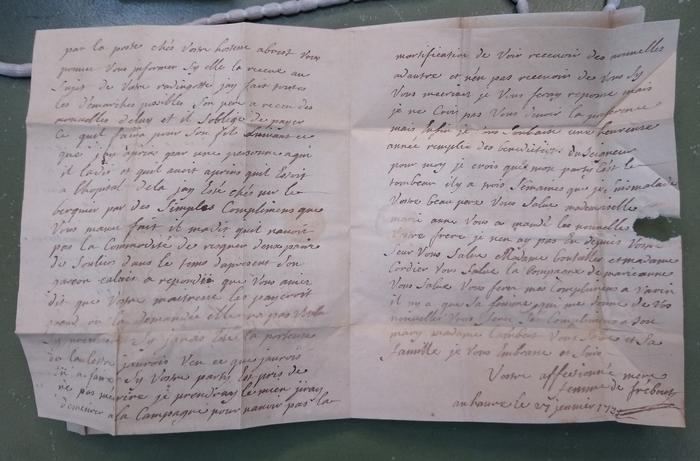 par la poste chés Votre hotesse abrest Vous
pouvés Vous informer Sy elle la receue au
Sujet de Votre redingotte jay fait toutes
les démarches possibles Son pere a receu des
nouvelles deluy et il Soblige de payer
Ce quil faira pour Son fils Suivant ce
que jay apris par une personne
il et quil avoit apris quil Estoit
a lhopital dela jay Esté chés
par des Simples Complimens que
Vous mavés fait il madit quil navoit
pas la Commodité de deux paire
de Soulies dans le tems dapresent Son
garson calais a repondu que Vous aviez
dit que Votre maitresse les payeroit
quand on la demandée elle na pas
Sy jamais Esté la porteuse
jaurois Veu ce que jaurois
a faire Sy Votre party Est pris de
ne pas je prendray le mien jiray
demeurer a la Campagne pour navoir pas la
mortification de Voir recevoir des nouvelles
dautre et non pas recevoir de Vous Sy
Vous mecrivés je Vous feray reponse mais
je ne Crois pas Vous devoir la preference
mais Enfin je Vous Souhaite une heureuse
année remplie des benedictions du Seigneur
pour moy je crois que mon party Est le
tombeau il y a trois Semaines que je Suis malade
Votre beau pere Vous Salue mademoiselle
marie anne Vous a mandé les nouvelles
Votre frere je nen ay pas eu depuis Votre
Seur Vous Salue Madame et madame
Cordier Vous Salue la Compagne de marie anne
Vous Salue Vous ferés mes Complimens a
il ny a que Sa femme qui me donne de Vos
nouvelles Vous ferés les Complimens a Son
mary madame Vous Salue et Sa
famille je Vous Embrasse et Suis
Votre affectionnée mere
femme de
au havre le 27 janvier